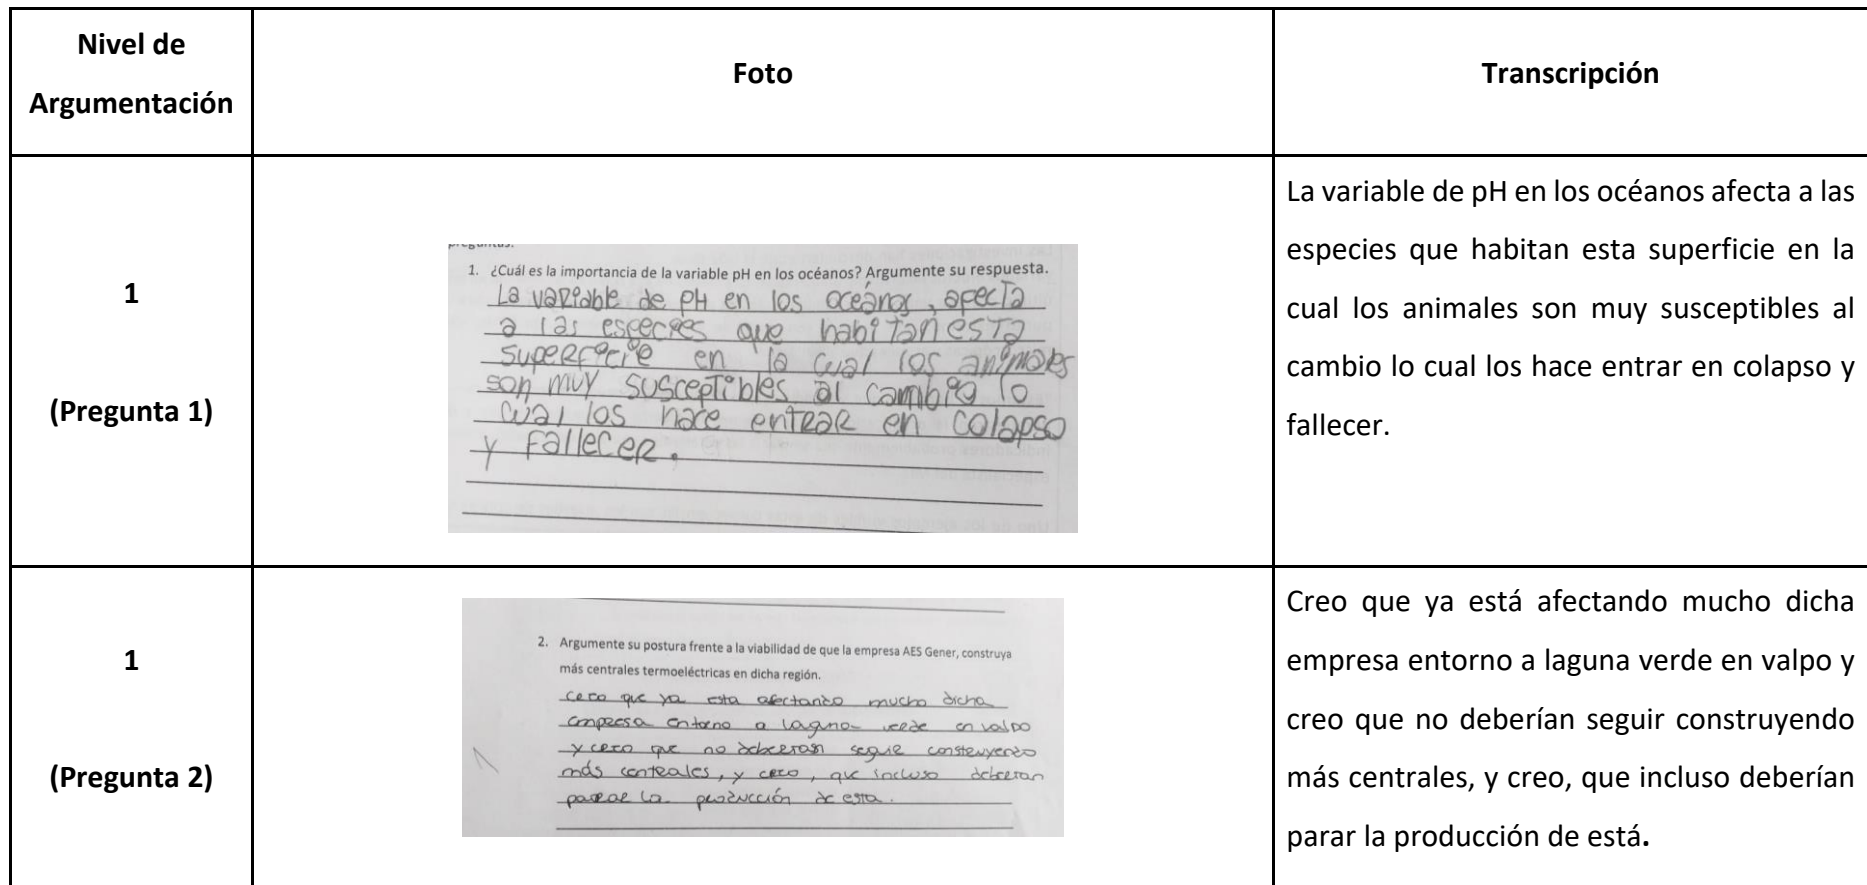 Nivel de
Argumentación
Foto
Transcripción
1
(Pregunta 1)
preguntas.
1. ¿Cuál es la importancia de la variable pH en los océanos? Argumente su respuesta.
La variable de pH en los oceános, afecta
a las especies que habitan esta
superficie en la cual los animales
son muy susceptibles al cambio lo
cual los hace entrar en colapso
y fallecer.
La variable de pH en los océanos afecta a las
especies que habitan esta superficie en la
cual los animales son muy susceptibles al
cambio lo cual los hace entrar en colapso y
fallecer.
1
(Pregunta 2)
2. Argumente su postura frente a la viabilidad de que la empresa AES Gener, construya
más centrales termoeléctricas en dicha región.
creo que ya esta afectando mucho dicha
empresa entorno a laguna verde en valpo
y creo que no deberian seguir construyendo
más centrales, y creo, que incluso deberian
parar la producción de esta.
Creo que ya está afectando mucho dicha
empresa entorno a laguna verde en valpo y
creo que no deberían seguir construyendo
más centrales, y creo, que incluso deberían
parar la producción de está.